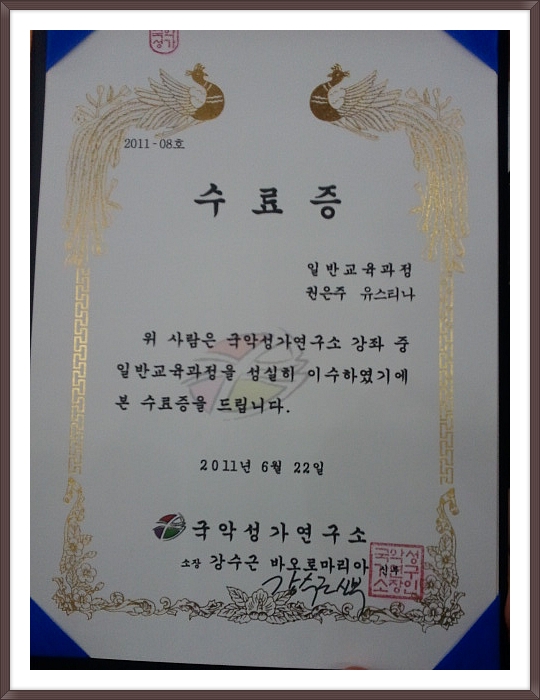 성가
2011-08호
수료증
일반교육과정
권은주 유스티나
위 사람은 국악성가연구소 강좌 중
일반교육과정을 성실히 이수하였기에
본 수료증을 드립니다.
2011년 6월 22일
국악성가연구소
소장 강수근 바오로마리아 신부
강수근신부
국악성
가연구
소장인